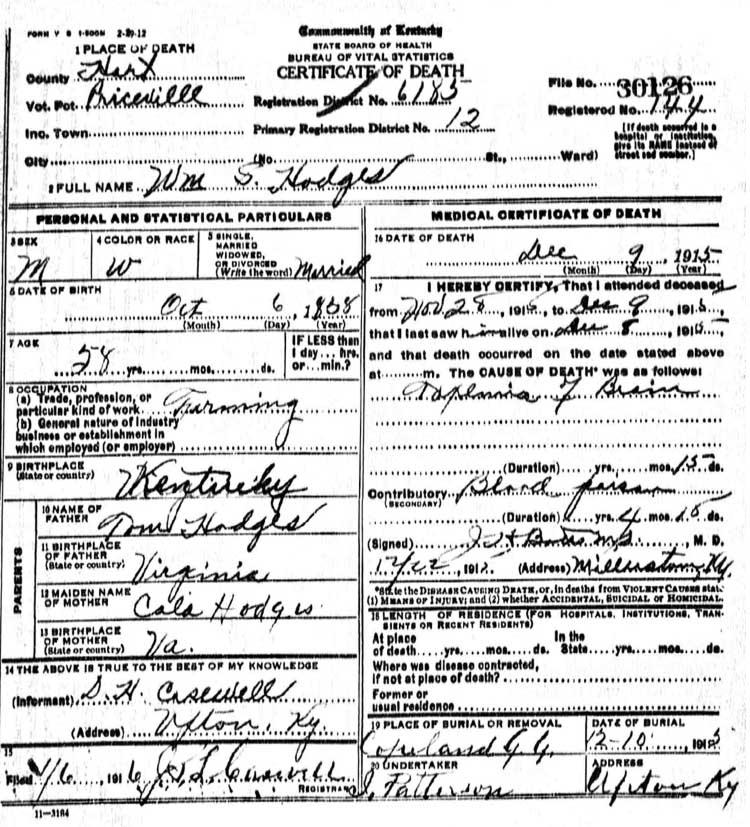 FORM V S 1-500M 2-29-12
Commonwealth of Kentucky
STATE BOARD OF HEALTH
BUREAU OF VITAL STATISTICS
CERTIFICATE OF DEATH
1 PLACE OF DEATH
County Hart
Vot. Pct. Priceville
Inc. Town
City
Registration District No. 6185
Primary Registration District No. 12
File No. 30126
Registered No. 144
(No. St., Ward)
[If death occurred in a hospital or institution, give its NAME instead of street and number.]
2 FULL NAME Wm S. Hodges
PERSONAL AND STATISTICAL PARTICULARS
3 SEX
M
4 COLOR OR RACE
W
5 SINGLE, MARRIED WIDOWED, OR DIVORCED (Write the word) Married
6 DATE OF BIRTH
Oct 6, 1858
(Month) (Day) (Year)
7 AGE
58 yrs. mos. ds.
IF LESS than 1 day... hrs. or... min.?
8 OCCUPATION
(a) Trade, profession, or particular kind of work Farming
(b) General nature of industry business or establishment in which employed (or employer)
9 BIRTHPLACE
(State or country)
Kentucky
PARENTS
10 NAME OF FATHER
Tom Hodges
11 BIRTHPLACE OF FATHER (State or country)
Virginia
12 MAIDEN NAME OF MOTHER
Hodges
13 BIRTHPLACE OF MOTHER (State or country)
Va.
14 THE ABOVE IS TRUE TO THE BEST OF MY KNOWLEDGE
(Informant) D. H. Casewell
(Address) Upton, Ky.
15
Filed 1916
REGISTRAR
11-3184
MEDICAL CERTIFICATE OF DEATH
16 DATE OF DEATH
Dec 9, 1915
(Month) (Day) (Year)
17 I HEREBY CERTIFY, That I attended deceased
from Nov. 28, 1915, to Dec 9, 1915
that I last saw h alive on Dec 8, 1915
and that death occurred on the date stated above
at m. The CAUSE OF DEATH* was as follows:
Brain
(Duration) yrs. mos. 15 ds.
Contributory Blood poison
(SECONDARY)
(Duration) yrs. 4 mos. 15 ds.
(Signed) M. D.
, 191 (Address) Millerstown, Ky.
*State the DISEASE CAUSING DEATH, or, in deaths from VIOLENT CAUSES state (1) MEANS OF INJURY; and (2) whether ACCIDENTAL, SUICIDAL or HOMICIDAL.
18 LENGTH OF RESIDENCE (FOR HOSPITALS, INSTITUTIONS, TRANSIENTS OR RECENT RESIDENTS)
At place of death yrs. mos. ds. In the State yrs. mos. ds.
Where was disease contracted, if not at place of death?
Former or usual residence
19 PLACE OF BURIAL OR REMOVAL
Copeland G.Y.
DATE OF BURIAL
12-10, 1915
20 UNDERTAKER
J. Patterson
ADDRESS
Upton Ky